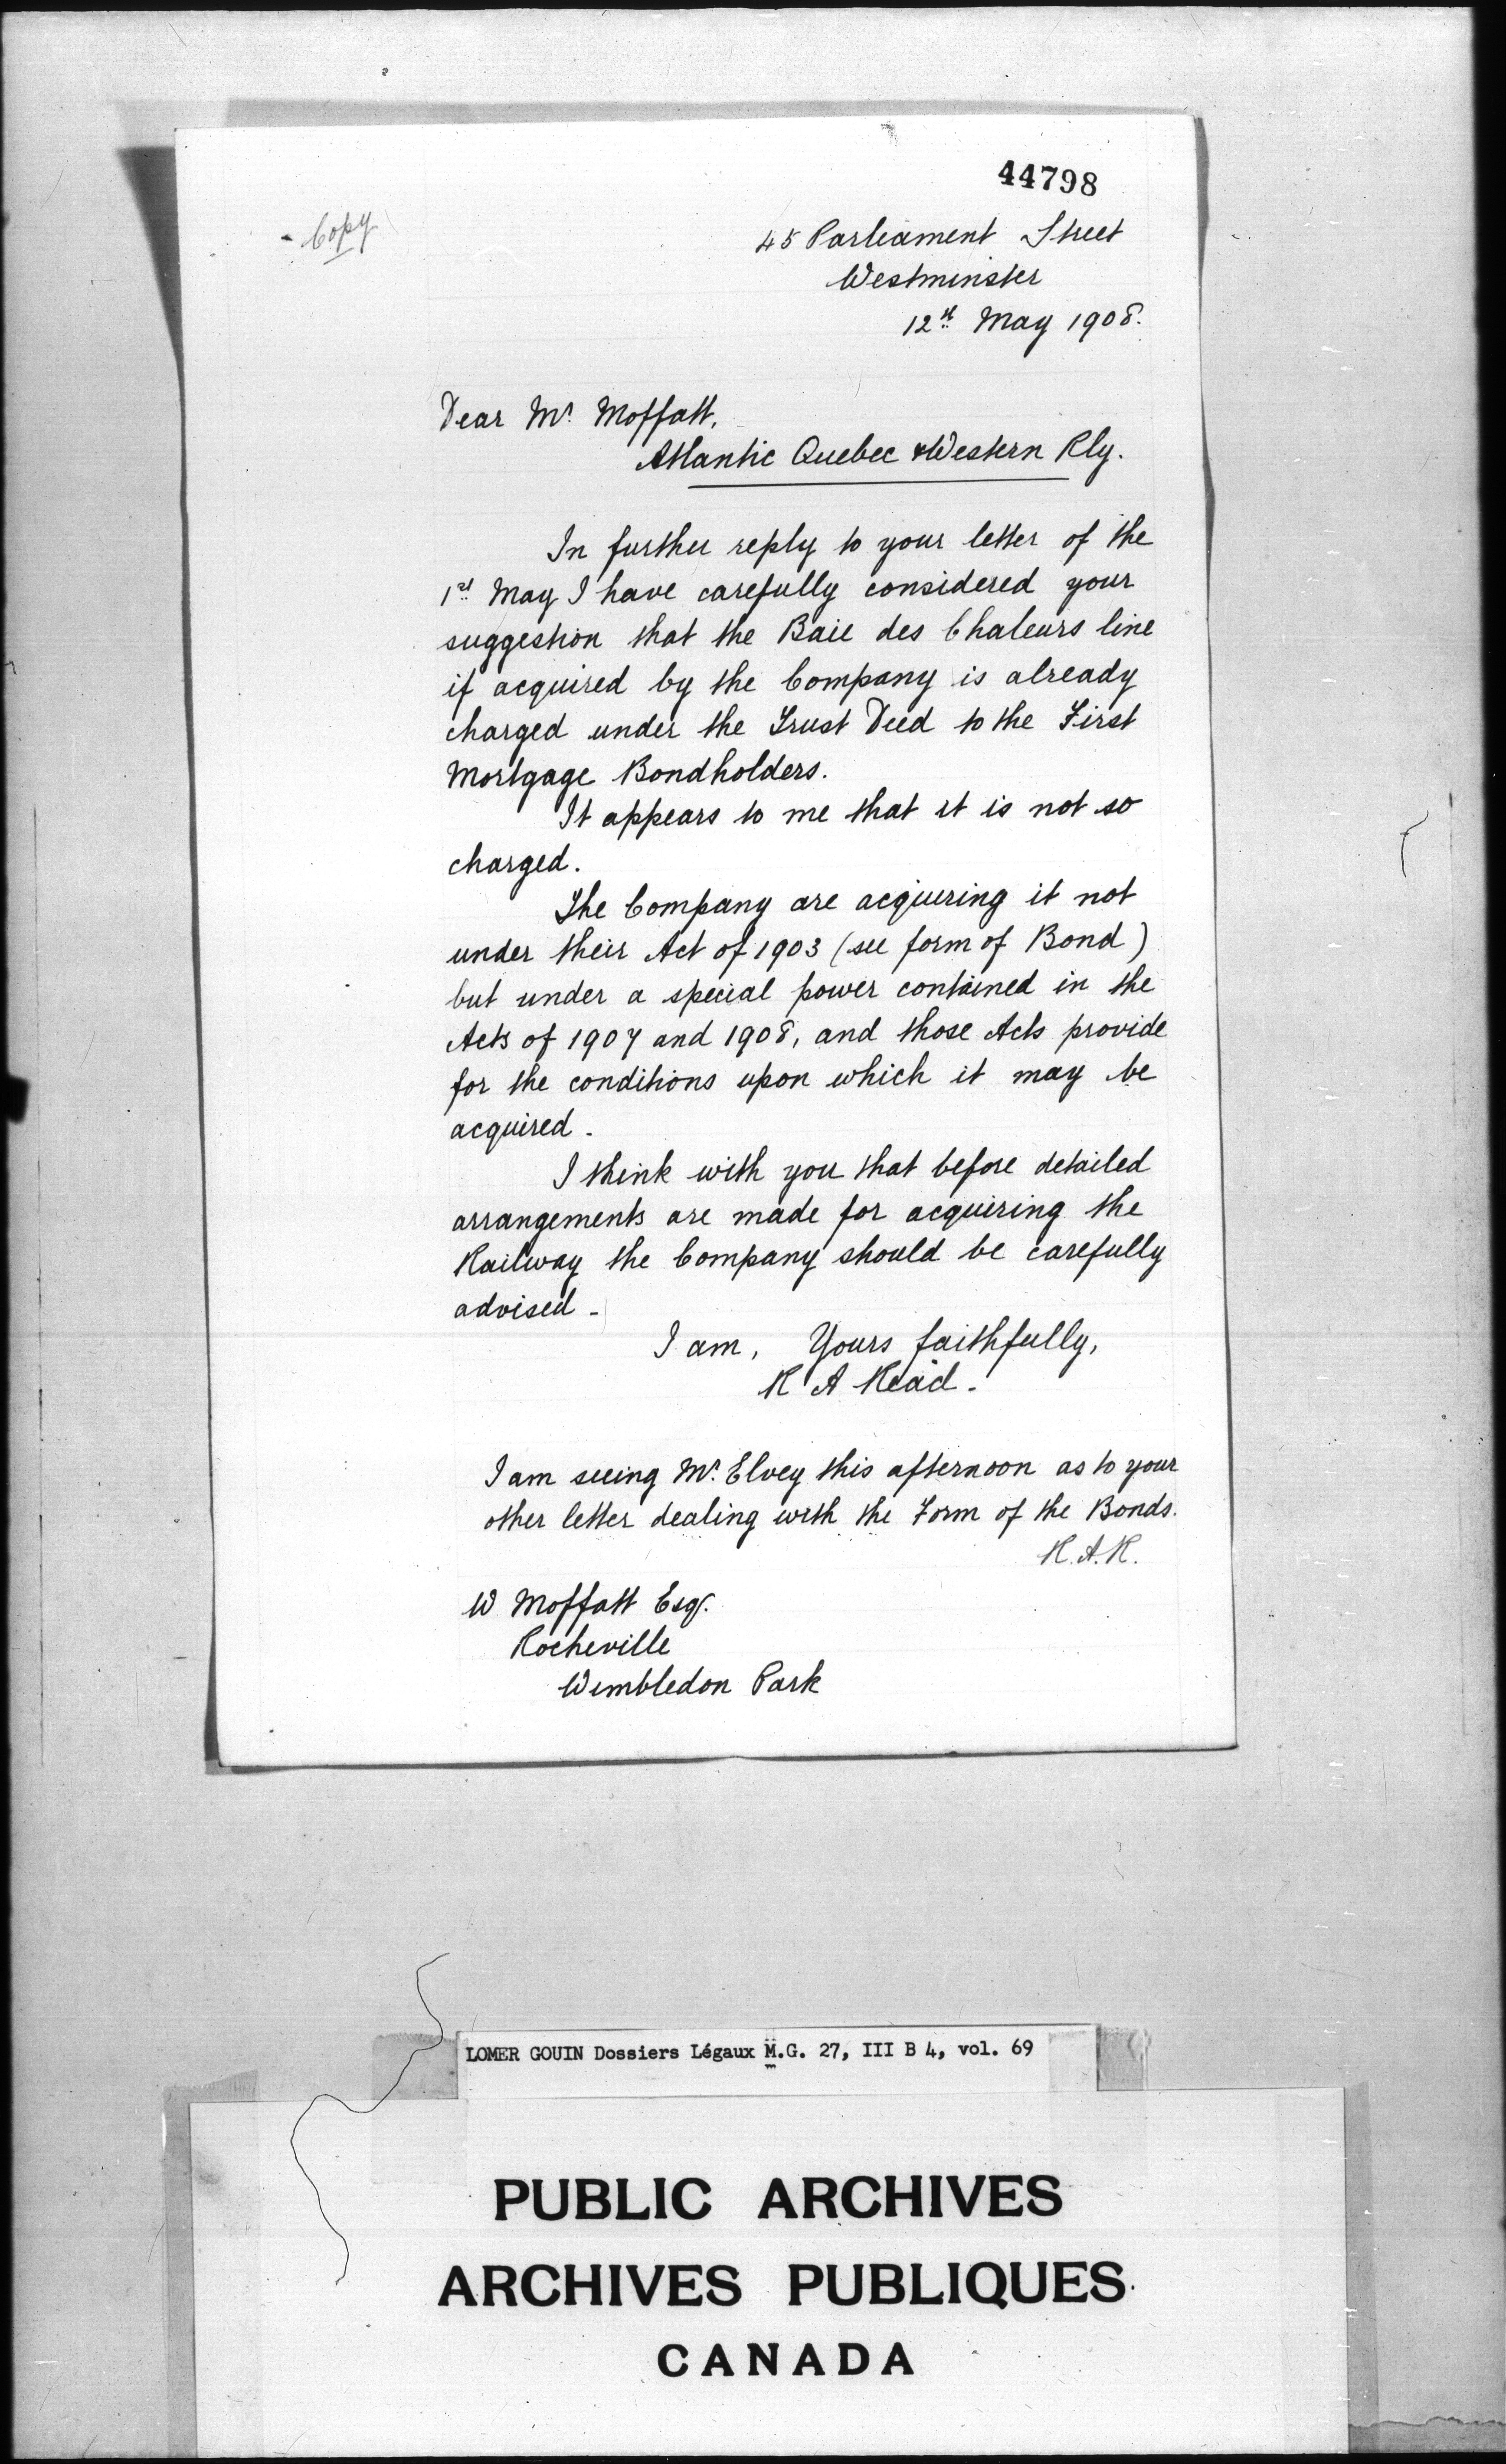 44798
Copy
45 Parliament Street
Westminster
12th May 1908.
Dear Mr. Moffatt,
Atlantic Quebec & Western Rly.
In further reply to your letter of the
1st May I have carefully considered your
suggestion that the Baie des Chaleurs line
if acquired by the Company is already
charged under the Trust Deed to the First
Mortgage Bondholders.
It appears to me that it is not so
charged.
The Company are acquiring it not
under their Act of 1903 (see form of Bond)
but under a special power contained in the
Acts of 1907 and 1908, and those Acts provide
for the conditions upon which it may be
acquired -
I think with you that before detailed
arrangements are made for acquiring the
Railway the Company should be carefully
advised -
I am, Yours faithfully,
R A Read.
I am seeing Mr. Elvey this afternoon as to your
other letter dealing with the Form of the Bonds.
R.A.R.
W Moffatt Esq.
Rocheville
Wimbledon Park
LOMER GOUIN Dossiers Légaux M.G. 27, III B 4, vol. 69
PUBLIC ARCHIVES
ARCHIVES PUBLIQUES
CANADA